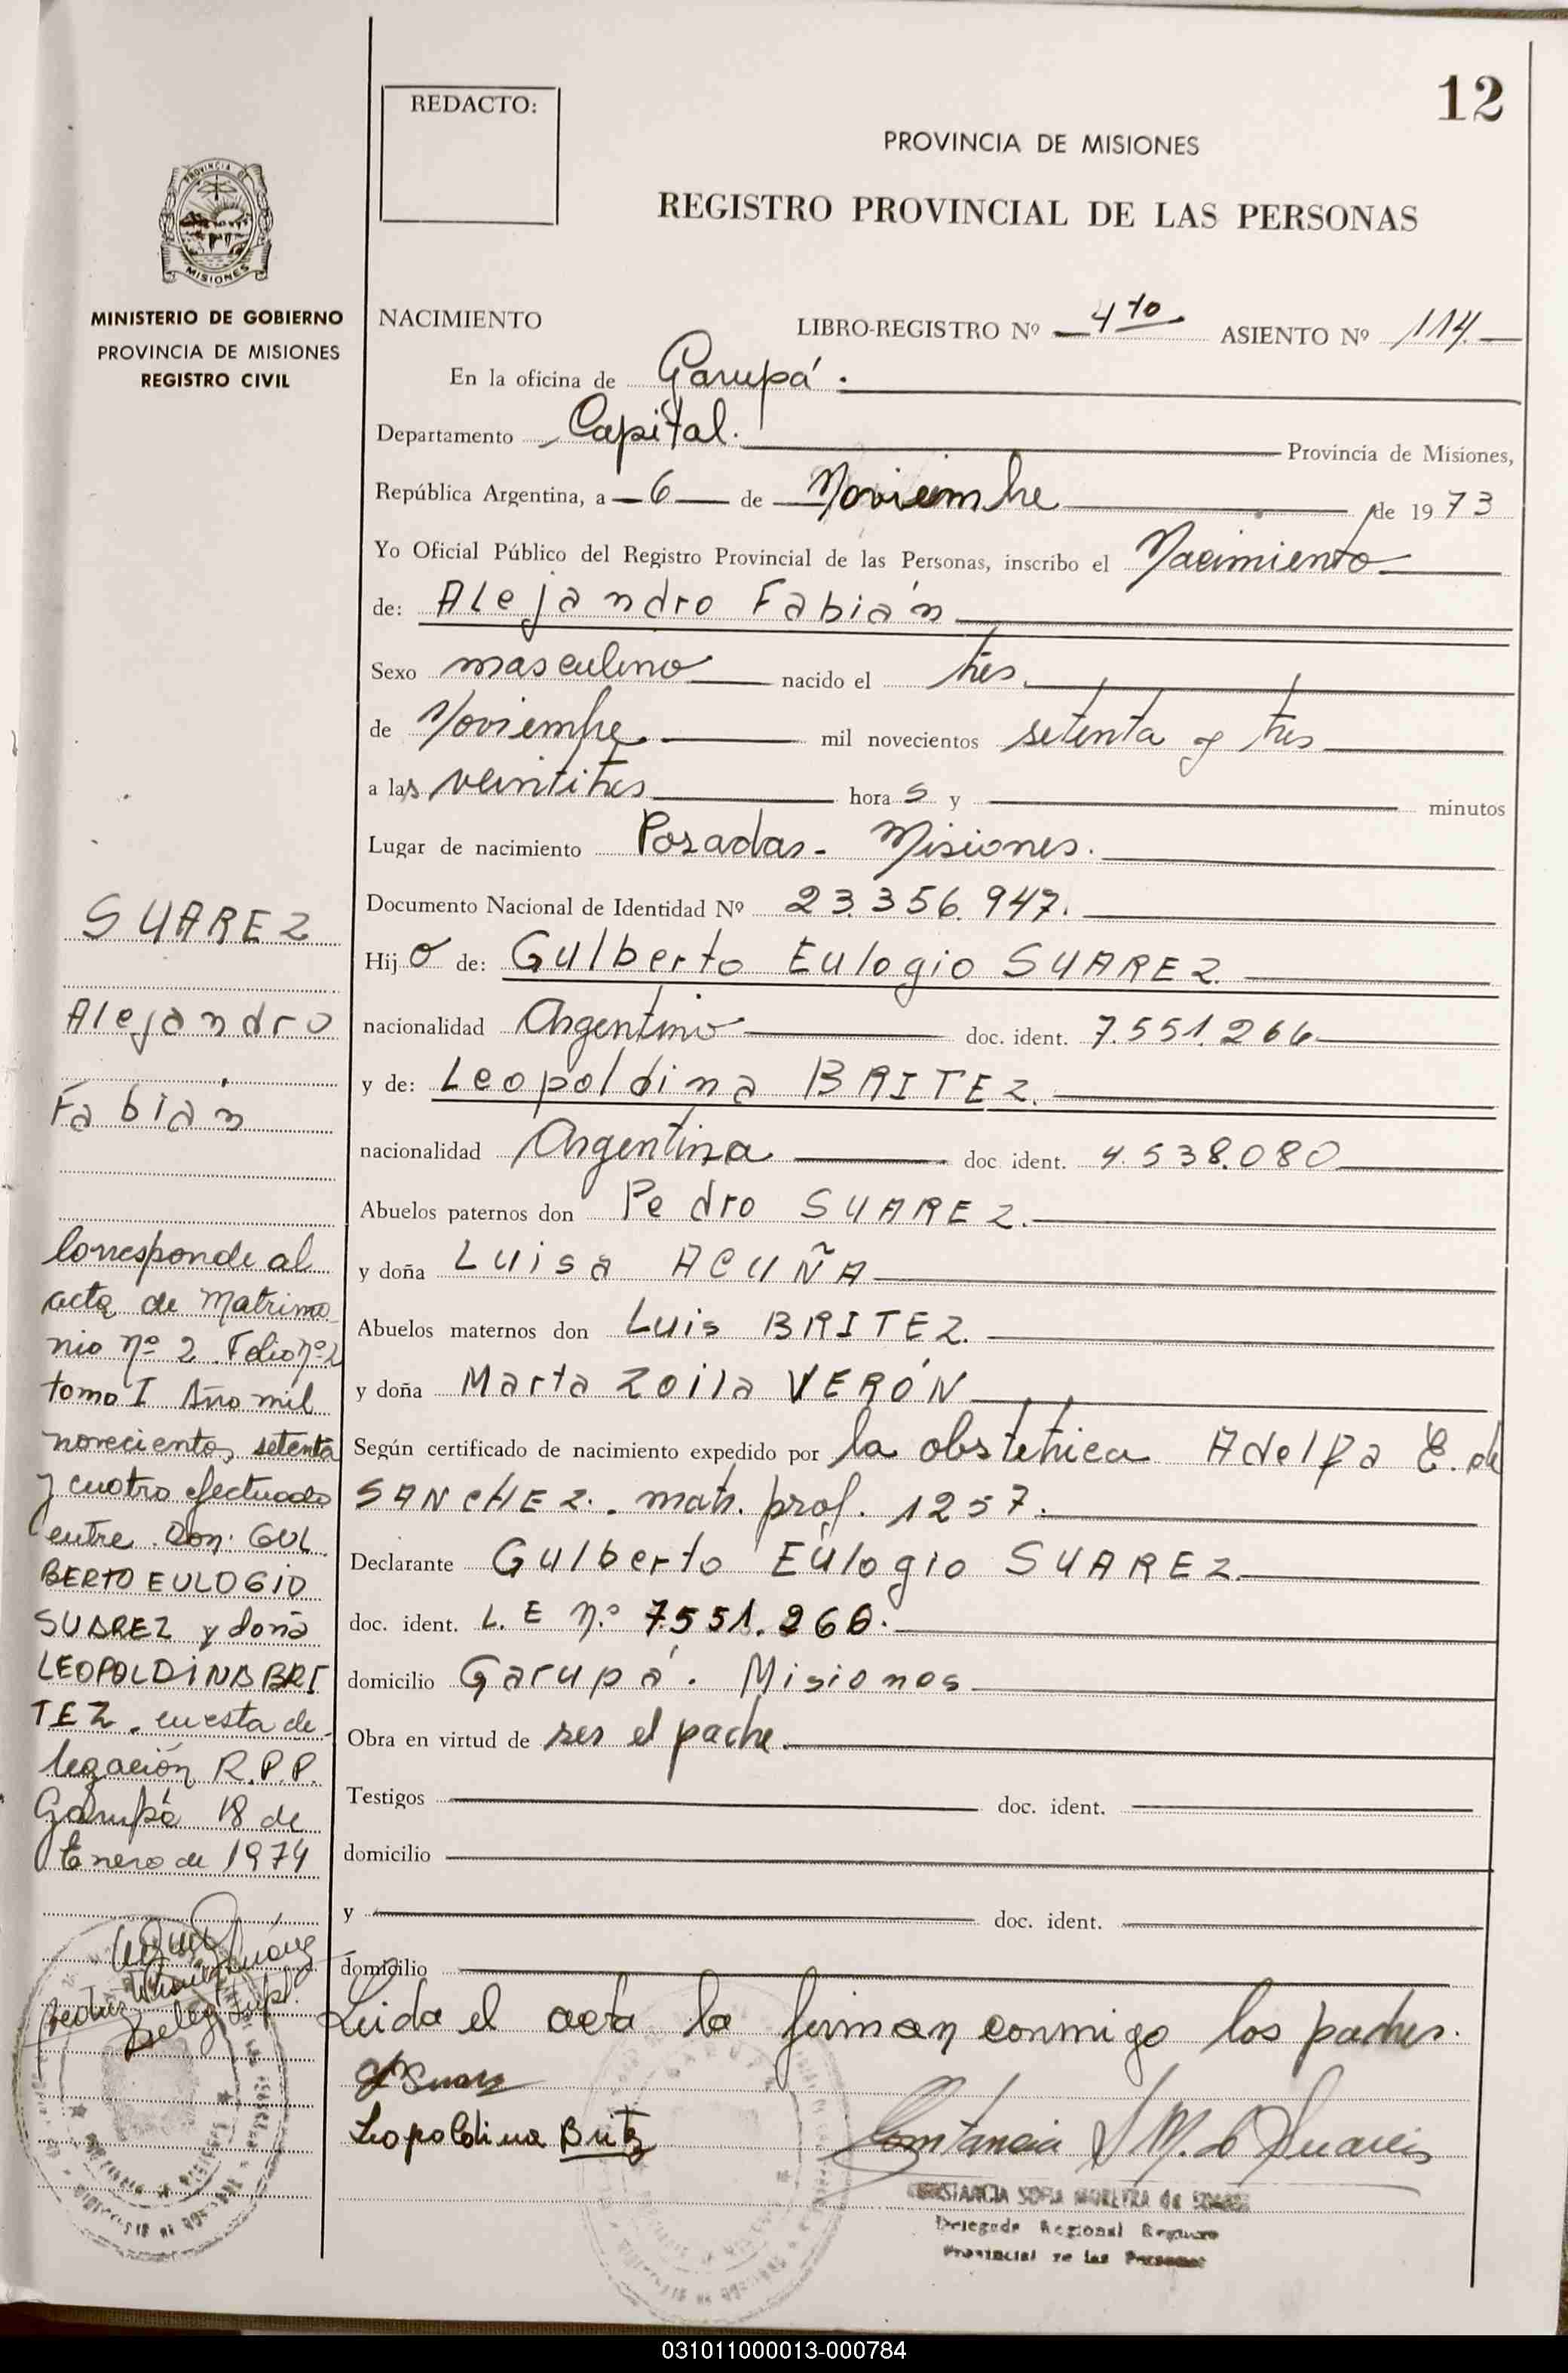 12
REDACTO:
PROVINCIA DE MISIONES
REGISTRO PROVINCIAL DE LAS PERSONAS
PROVINCIA DE
MISIONES
MINISTERIO DE GOBIERNO
PROVINCIA DE MISIONES
REGISTRO CIVIL
NACIMIENTO LIBRO-REGISTRO Nº 4to ASIENTO Nº 114.
En la oficina de Garupá.
Departamento Capital. Provincia de Misiones,
República Argentina, a 6 de Noviembre de 1973
Yo Oficial Público del Registro Provincial de las Personas, inscribo el Nacimiento
de: Alejandro Fabián
Sexo masculino nacido el tres.
de Noviembre. mil novecientos setenta y tres
a las veintitres horas y minutos
Lugar de nacimiento Posadas - Misiones.
Documento Nacional de Identidad Nº 23.356.947.
Hijo de: Gulberto Eulogio SUAREZ.
nacionalidad Argentino doc. ident. 7.551.266
y de: Leopoldina BRITEZ.
nacionalidad Argentina doc. ident. 4.538.080
Abuelos paternos don Pedro SUAREZ.
y doña Luisa ACUÑA
Abuelos maternos don Luis BRITEZ.
y doña Marta Zoila VERÓN
Según certificado de nacimiento expedido por la obstetrica Adelfa E. de
SANCHEZ. . matr. prof. 1257.
Declarante Gulberto Eulogio SUAREZ.
doc. ident. L. E n.º 7.551.266.
domicilio Garupá. Misiones
Obra en virtud de ser el padre.
Testigos doc. ident.
domicilio
y doc. ident.
domicilio
Leida el acta la firman conmigo los padres.
Leopoldina Britz
Constancia S M. d Suarez
CONSTANCIA SOFIA MOREYRA de SUAREZ
Delegada Regional Registro
Provincial de las Personas
SUAREZ
Alejandro
Fabián
Corresponde al
acta de Matrimo
nio nº 2 Folio nº 2
tomo I Año mil
novecientos setenta
y cuatro efectuado
entre Don: GUL
BERTO EULOGIO
SUAREZ y doña
LEOPOLDINA BRI
TEZ. en esta de-
legación R.P.P.
Garupá 18 de
Enero de 1974
Deleg. Supl.
031011000013-000784